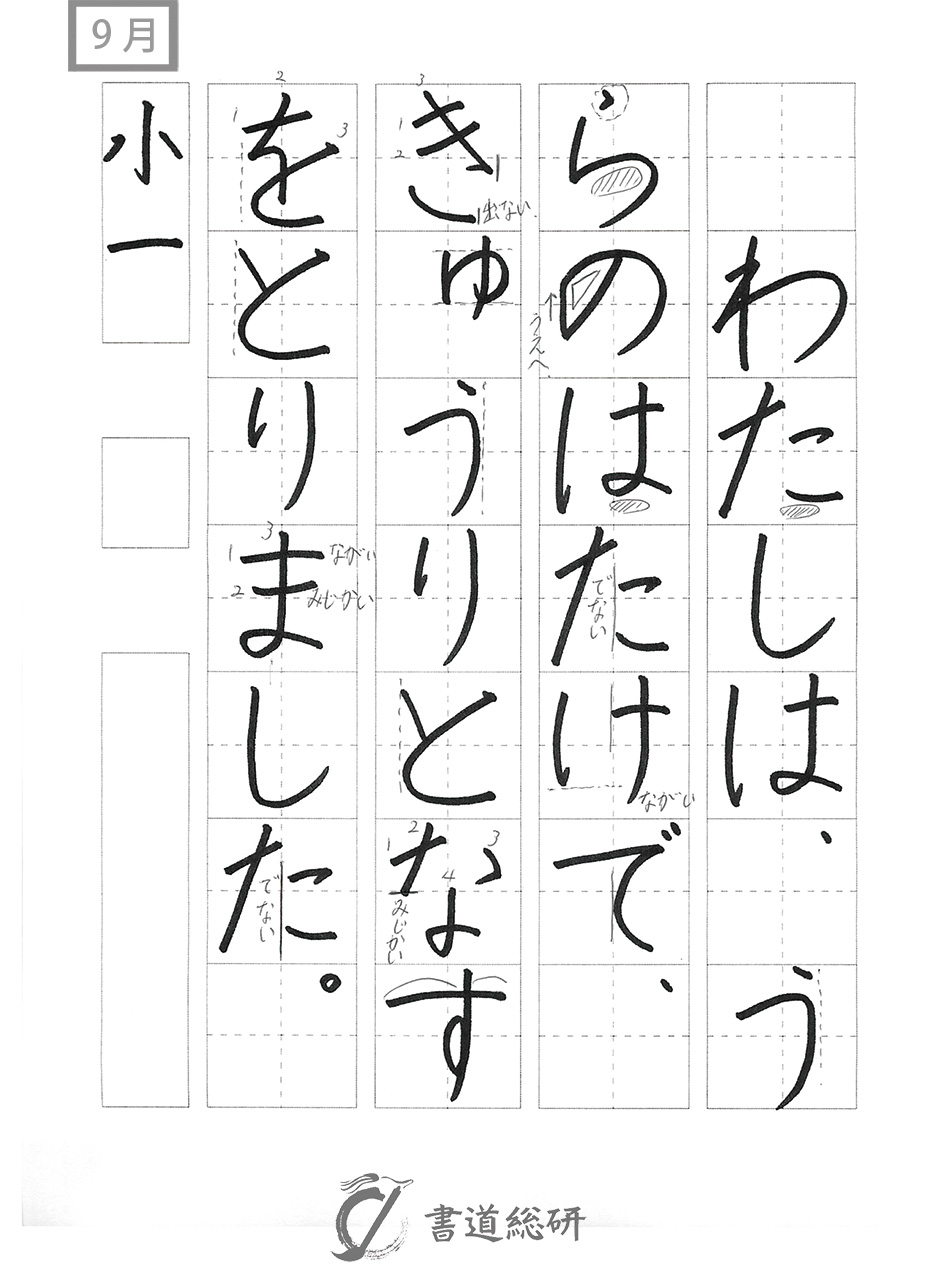 9月
わたしは、う
らのはたけで、
きゅうりとなす
をとりました。
小一
うえへ
でない
ながい
1
2
3
出ない
1
2
3
4
みじかい
1
2
3
1
2
3
ながい
みじかい
でない
書道総研